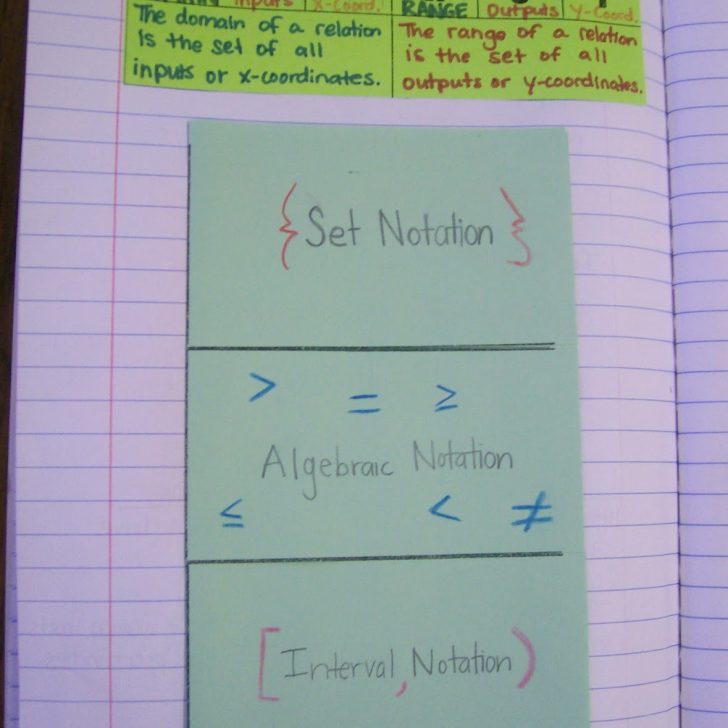 Inputs X-Coord. RANGE Outputs Y-Coord.
The domain of a relation
is the set of all
inputs or x-coordinates.
The range of a relation
is the set of all
outputs or y-coordinates.
{ Set Notation }
> = ≥
Algebraic Notation
≤ < ≠
[Interval, Notation)